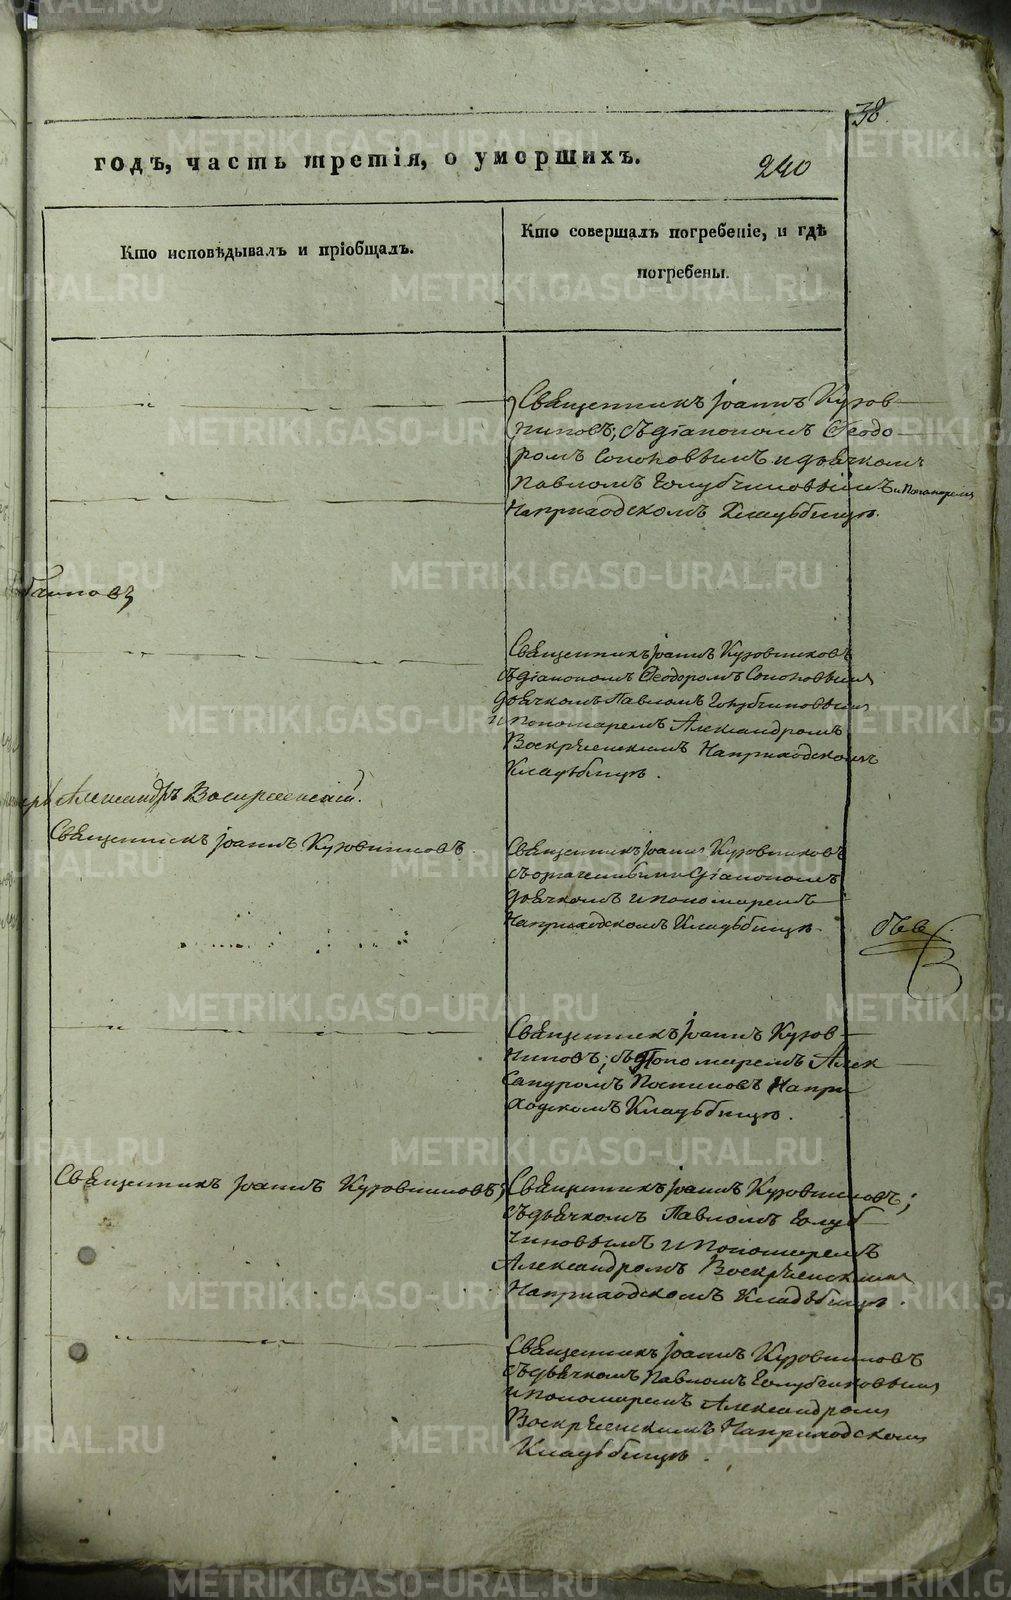 38.
годъ, часть третія, о умершихъ.
240
Кто исповѣдывалъ и пріобщалъ.
Кто совершалъ погребеніе, и гдѣ
погребены.
Священникъ Іоаннъ Кузов
никовъ, съ діакономъ Ѳеодо
ромъ и дьячкомъ
Павломъ Голубчиковымъ и Пономарем
На приходскомъ Кладьбищѣ.
Священникъ Іоаннъ Кузовниковъ
съ діакономъ Ѳеодоромъ
дьячкомъ Павломъ Голубчиковымъ
и пономаремъ Александромъ
Воскресенскимъ На приходскомъ
Кладьбищѣ.
Александръ Воскресенскій.
Священникъ Іоаннъ Кузовниковъ
Священникъ Іоаннъ Кузовниковъ
съ означенными діакономъ
дьячкомъ и пономаремъ
На приходскомъ Кладьбищѣ.
Священникъ Іоаннъ Кузов
никовъ; съ Пономаремъ Алек
сандромъ На при
ходскомъ Кладьбищѣ.
Священникъ Іоаннъ Кузовниковъ;
Священникъ Іоаннъ Кузовниковъ;
съ дьячкомъ Павломъ Голуб
чиковымъ и пономаремъ
Александромъ Воскресенскимъ
На приходскомъ Кладьбищѣ.
Священникъ Іоаннъ Кузовниковъ
съ дьячкомъ Павломъ Голубчиковымъ
и пономаремъ Александромъ
Воскресенскимъ На приходскомъ
Кладьбищѣ.
METRIKI.GASO-URAL.RU